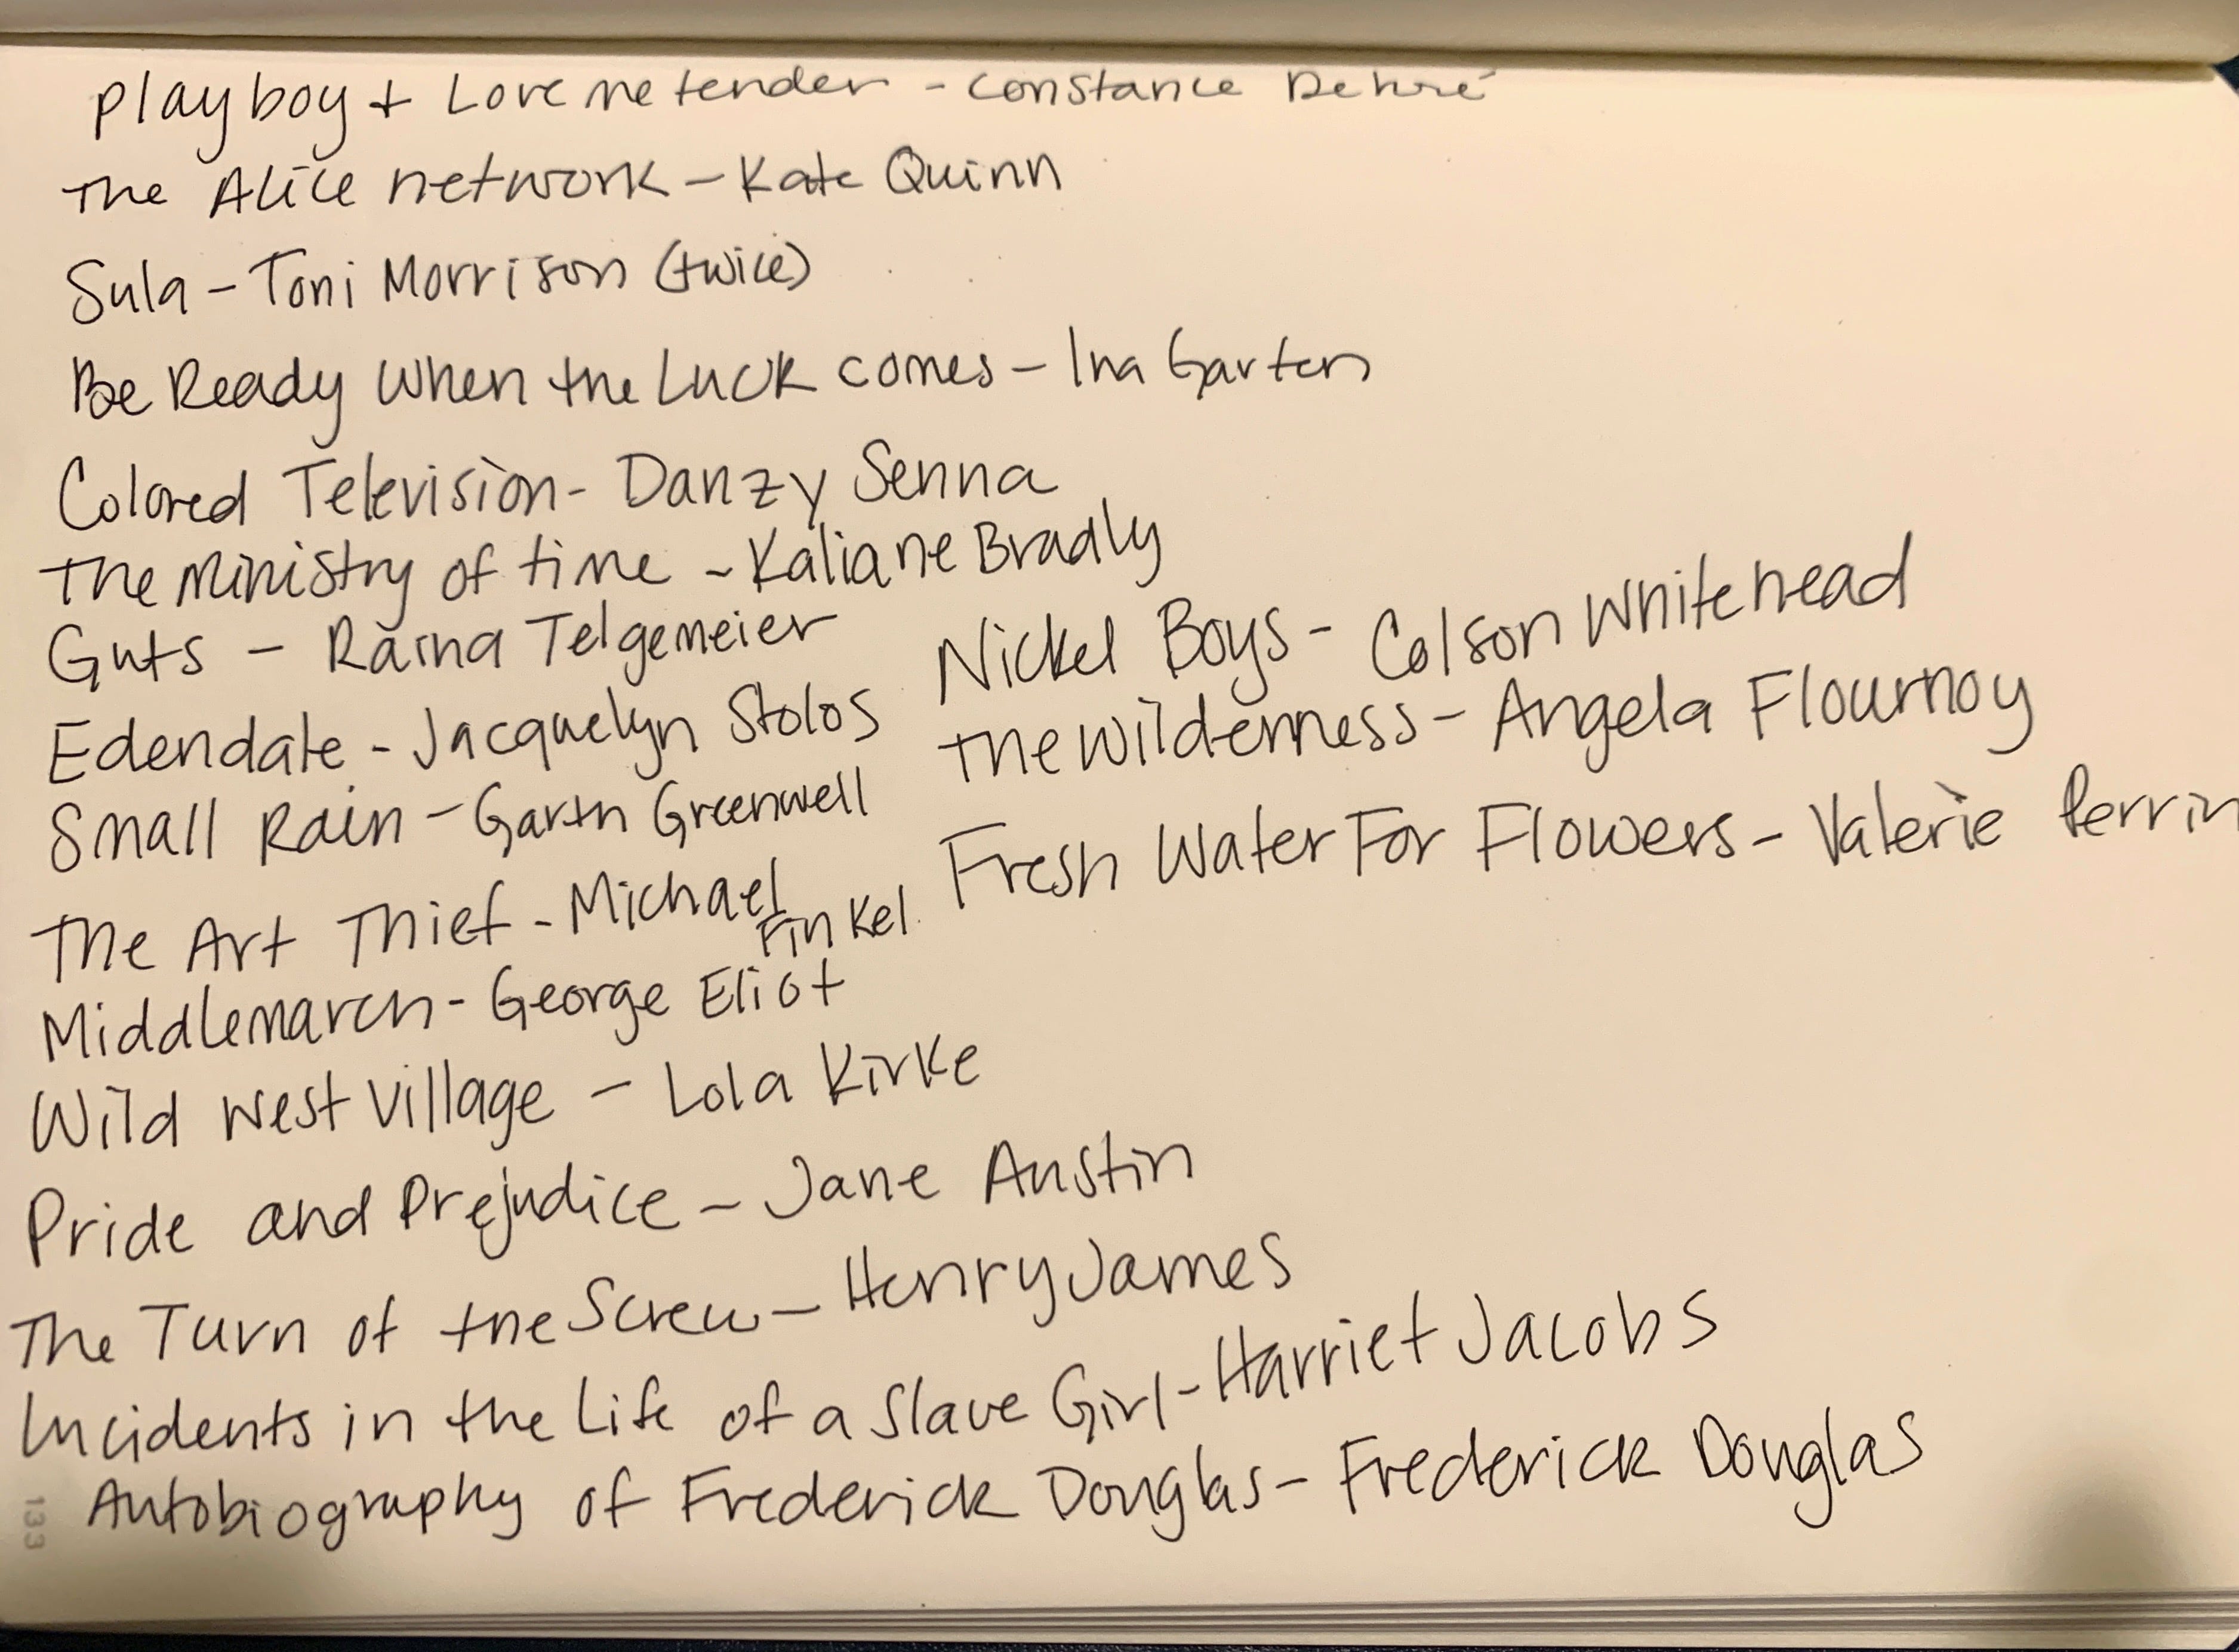 playboy + Love me tender - Constance Debré
The Alice network - Kate Quinn
Sula - Toni Morrison (twice)
Be Ready When the Luck comes - Ina Garten
Colored Television - Danzy Senna
The Ministry of time - Kaliane Bradly
Guts - Raina Telgemeier
Edendale - Jacquelyn Stolos
Small Rain - Garth Greenwell
The Art Thief - Michael Finkel
Middlemarch - George Eliot
Wild West Village - Lola Kirke
Pride and Prejudice - Jane Austin
The Turn of the Screw - Henry James
Incidents in the Life of a Slave Girl - Harriet Jacobs
Autobiography of Frederick Douglas - Frederick Douglas
Nickel Boys - Colson Whitehead
The Wilderness - Angela Flournoy
Fresh Water For Flowers - Valerie Perrin
133